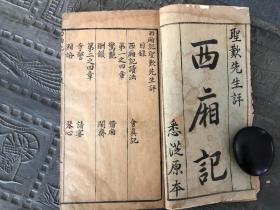 聖歎先生評
西廂記
悉從原本
西廂記聖歎先生評
目錄
西廂記讀法 會真記
第一之四章
驚艷 借廂
酬韻 鬧齋
第二之四章
寺警 請宴
賴婚 琴心